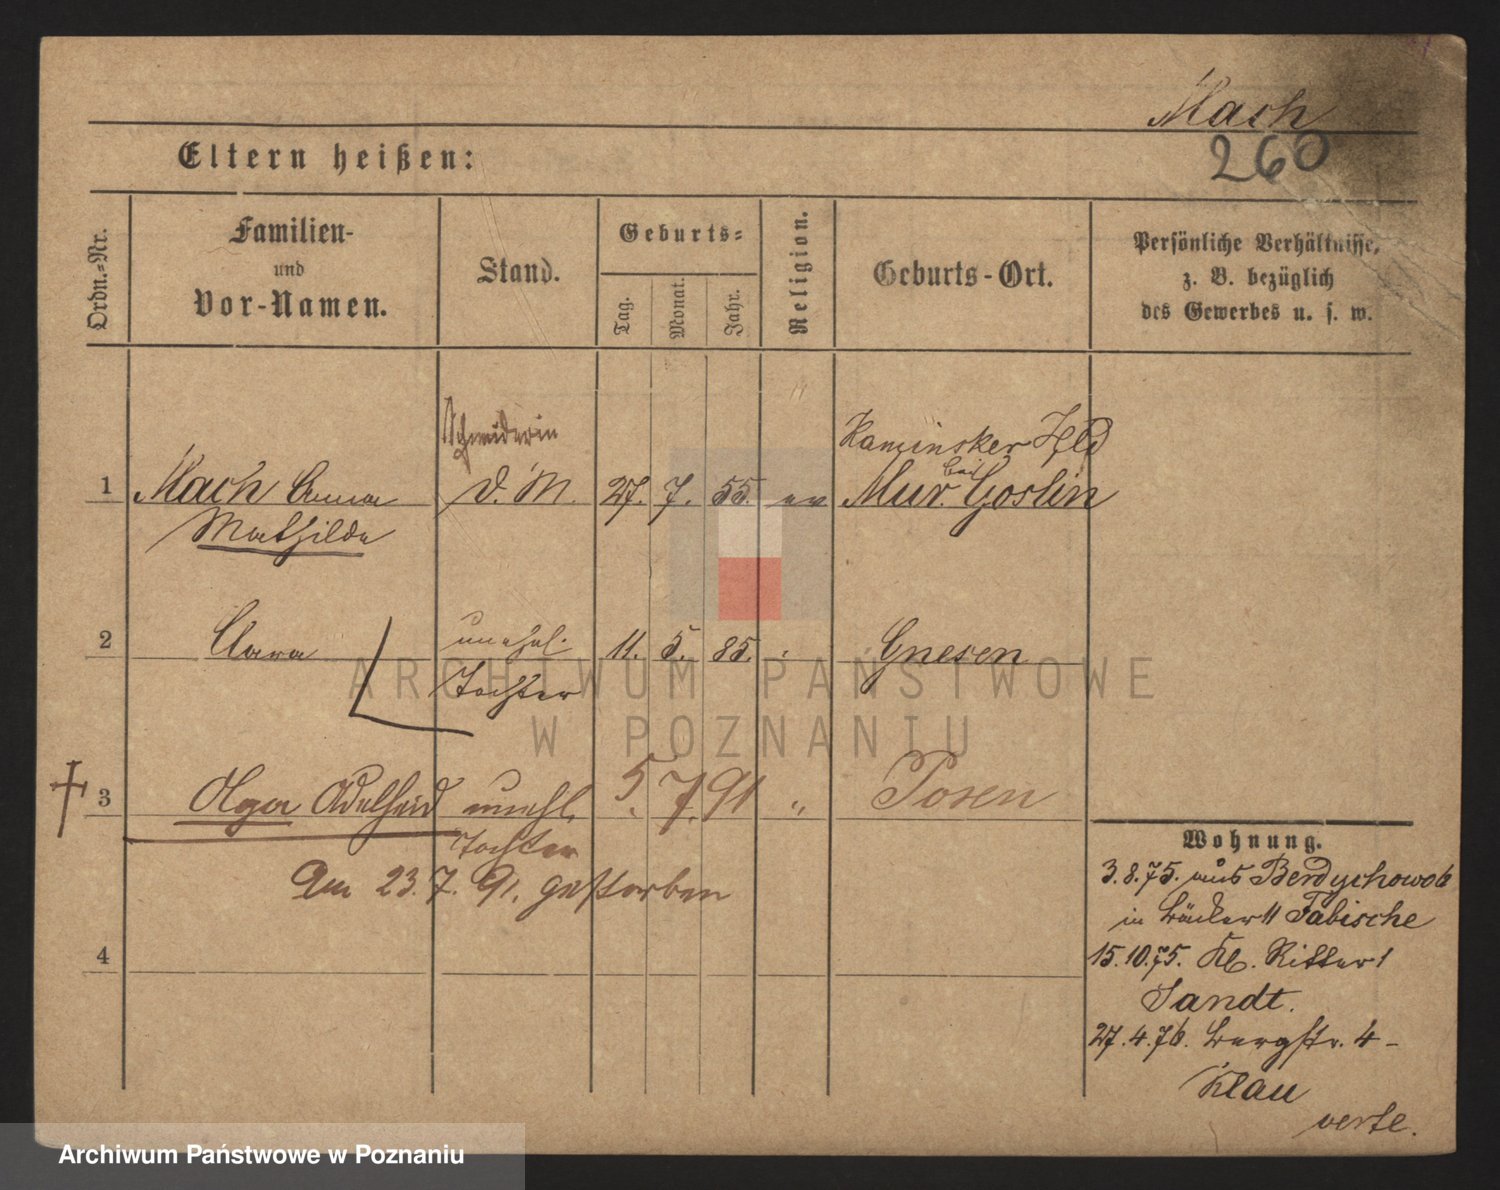 Mach
260
Eltern heißen:
Ordn.-Nr.
Familien-
und
Vor-Namen.
Stand.
Geburts-
Tag.
Monat.
Jahr.
Religion.
Geburts-Ort.
Persönliche Verhältnisse,
z. B. bezüglich
des Gewerbes u. s. w.
Schneiderin
Kaminsker Hld
bei
1 Mach Anna D. M. 27. 7. 55. ev Mur. Goslin
Mathilde
2 Clara unehel. 11. 5. 85. " Gnesen
Tochter
3 Olga Adelheid unehl. 5. 7. 91 " Posen
Tochter
Am 23. 7. 91. gestorben
4
Wohnung.
3.8.75. aus Berdychowo 6
in Bäcker 11 Fabische
15.10.75. Kl. Ritter 1
Sandt.
27.4.76. Bergstr. 4-
Klau
verte.
ARCHIWUM PAŃSTWOWE
W POZNANIU
Archiwum Państwowe w Poznaniu